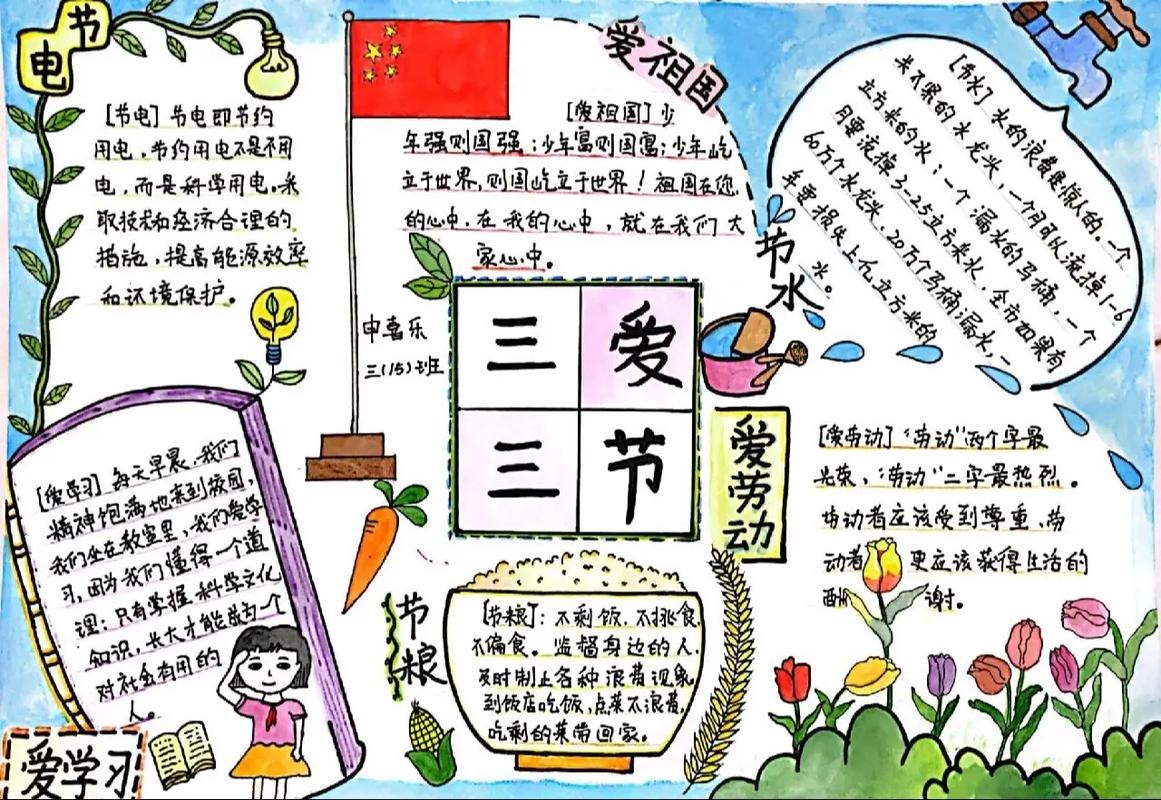 节电
[节电] 节电即节约
用电，节约用电不是不用
电，而是科学用电。采
取技术和经济合理的
措施，提高能源效率
和环境保护。
爱祖国
[爱祖国] 少
年强则国强；少年富则国富；少年屹
立于世界，则国屹立于世界！祖国在您
的心中，在我的心中，就在我们大
家心中。
节水
[节水] 水的浪费是惊人的。一个
关不紧的水龙头，一个月可以流掉1-6
立方米的水；一个漏水的马桶，一个
月要流掉3-25立方米水，全市如果有
60万个水龙头、20万个马桶漏水，一
年要损失上亿立方米的
水。
申喜乐
三(15)班
三爱
三节
爱学习
[爱学习] 每天早晨，我们
精神饱满地来到校园，
我们坐在教室里，我们爱学
习，因为我们懂得一个道
理：只有掌握科学文化
知识，长大才能做一个
对社会有用的
人。
节粮
[节粮]：不剩饭，不挑食，
不偏食。监督身边的人，
及时制止各种浪费现象，
到饭店吃饭，点菜不浪费，
吃剩的菜带回家。
爱劳动
[爱劳动] “劳动”两个字最
光荣，“劳动”二字最热烈。
劳动者应该受到尊重，劳
动者更应该获得生活的
酬谢。